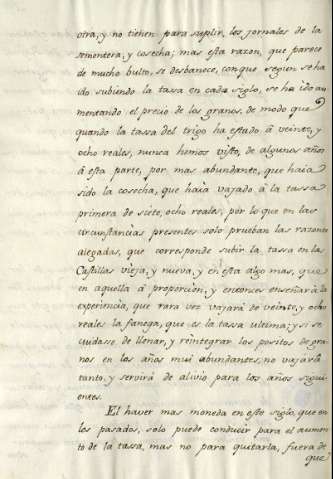 otra, y no tienen para suplir, los jornales de la
sementera, y cosecha; mas esta razon, que parece
de mucho bulto, se desbanece, con que segun se ha
ido subiendo la tassa en cada siglo, se ha ido au
mentando el precio de los granos, de modo que
quando la tassa del trigo ha estado â veinte, y
ocho reales, nunca hemos visto, de algunos años
â esta parte, por mas abundante, que haia
sido la cosecha, que haia vajado â la tassa
primera de siete, ocho reales, por lo que en las
circunstancias presentes solo prueban las razones
alegadas, que corresponde subir la tassa en las
Castillas vieja, y nueva, y en esta algo mas, que
en aquella â proporcion, y entonces enseñarà la
experiencia, que rara vez vajarà de veinte, y ocho
reales la fanega, que es la tassa ultima; y si se
cuidase de llenar, y reintegrar los positos de gra
nos en los años mui abundantes, no vajarìa
tanto, y servirà de alivio para los años sigui
entes.
El haver mas moneda en este siglo, que en
los pasados, solo puede conducir para el aumen
to de la tassa, mas no para quitarla, fuera de
que